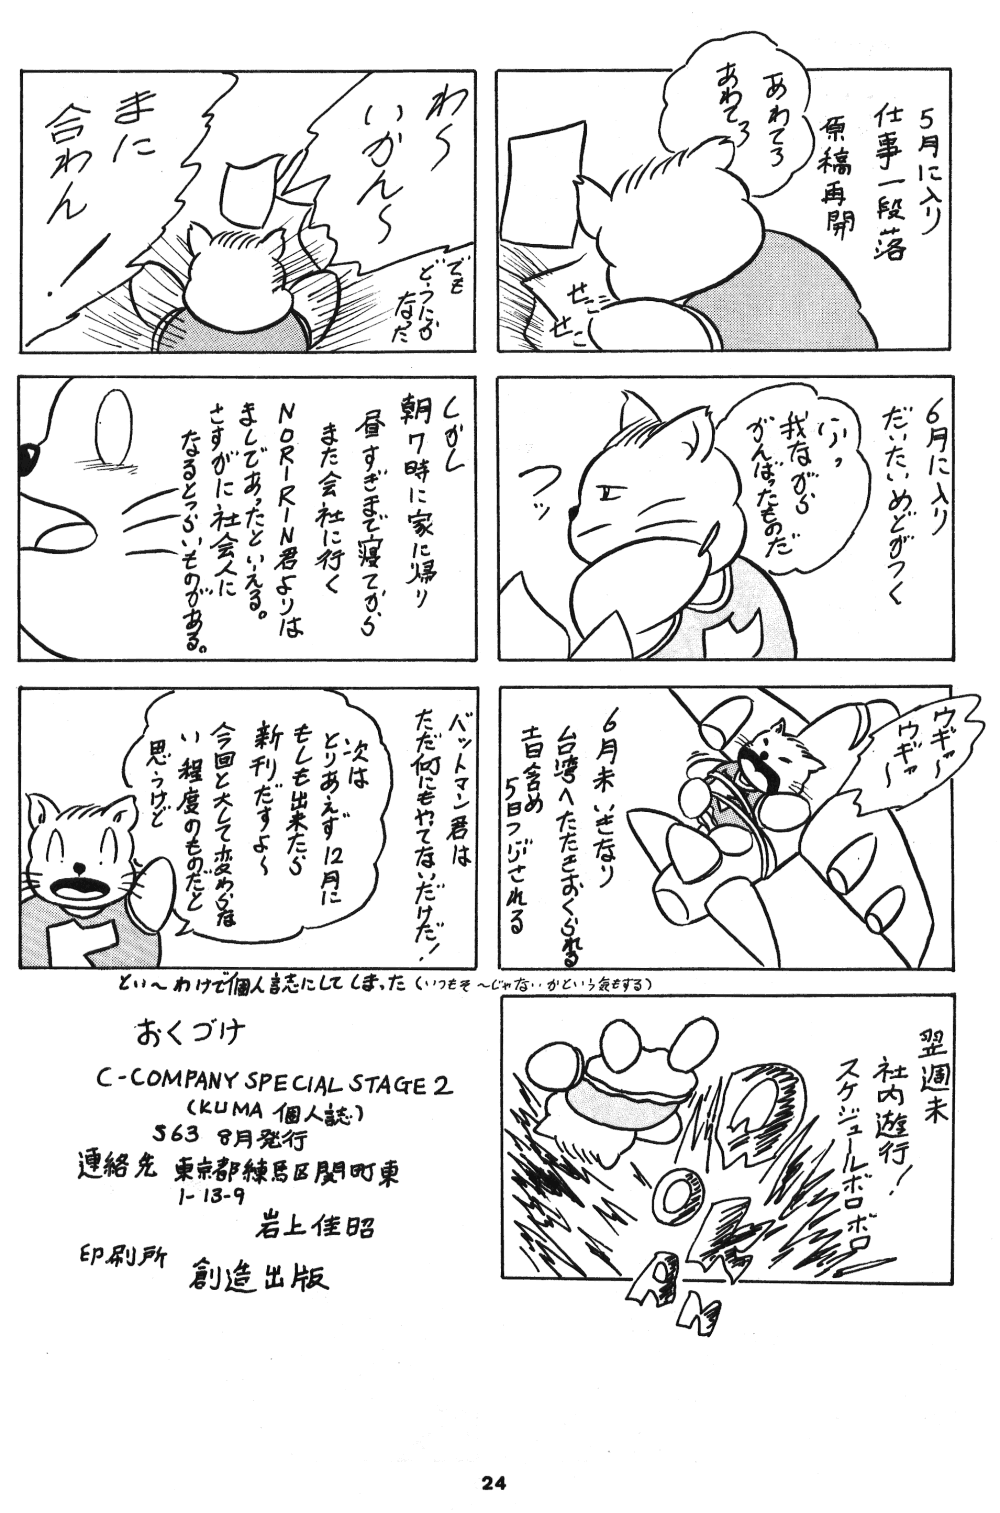 5月に入り
仕事一段落
原稿再開
あわてろ
あわてろ
せこ
せこ
6月に入り
だいたいめどがつく
ふっ
我ながら
がんばったものだ
フッ
6月末いきなり
台湾へたたきおくられる
土日含め
5日つぶされる
ウギャ〜
ウギャ〜
翌週末
社内遊行!
スケジュールボロボロ
わ〜
いかん〜
まに
合わん
!
でも
どーにか
なった
しかし
朝7時に家に帰り
昼すぎまで寝てから
また会社に行く
NORIRIN君よりは
ましであったといえる。
さすがに社会人に
なるとつらいものがある。
バットマン君は
ただ何にもやてないだけだ!
次は
とりあえず12月に
もしも出来たら
新刊だすよ〜
今回と大して変わらな
い程度のものだと
思うけど
とい〜わけで個人誌にしてしまった(いつもそ〜じゃないかという気もする)
おくづけ
C-COMPANY SPECIAL STAGE 2
(KUMA 個人誌)
S63 8月発行
連絡先 東京都練馬区関町東
1-13-9
岩上佳昭
印刷所
創造出版
24